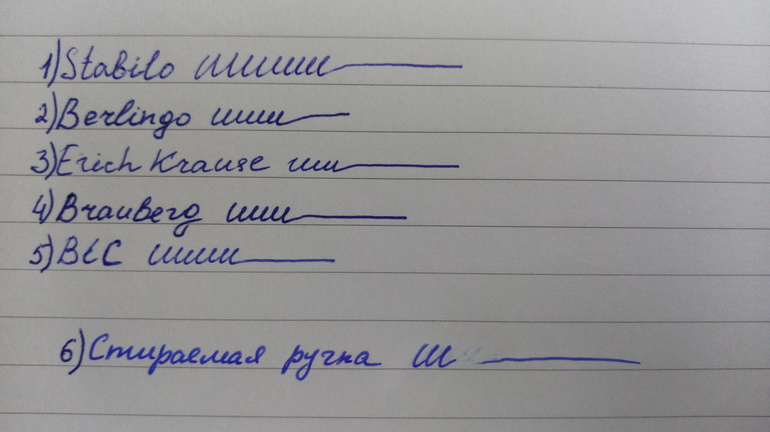 1) Stabilo
2) Berlingo
3) Erich Krause
4) Brauberg
5) BIC
6) Стираемая ручка